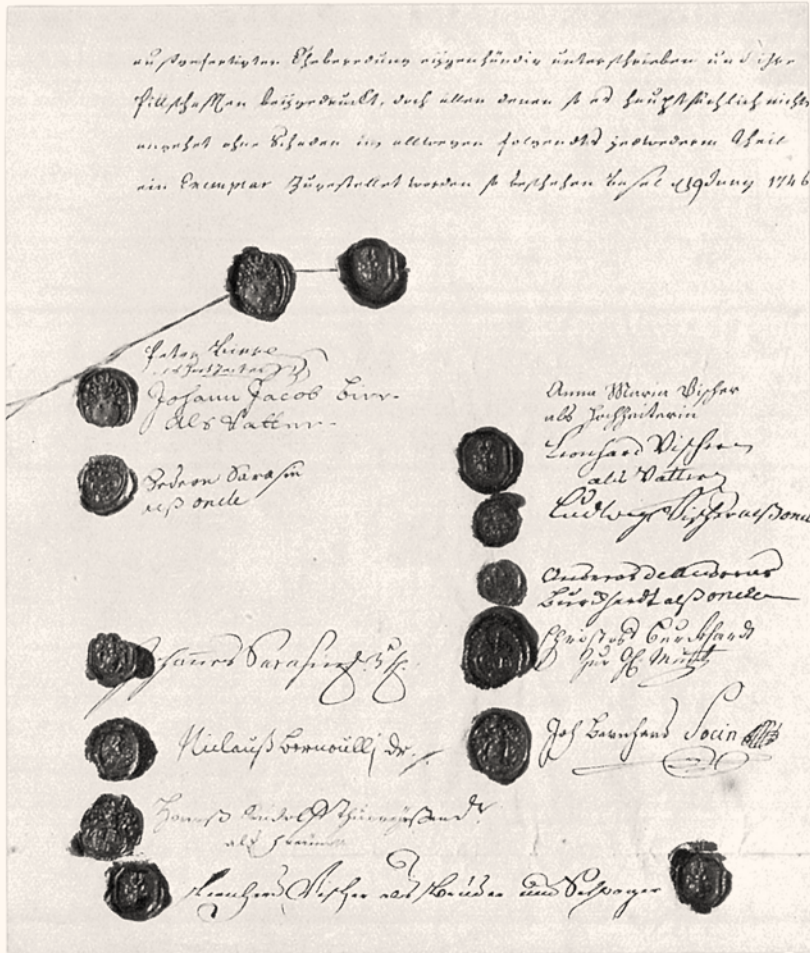 außgefertigten Eheberedung eigenhändig unterschrieben und ihre
Pittschafften beygedruckt, doch allen denen so es hauptsächlich nichts
angehet ohne Schaden im allwegen folgendts jedwederem Theil
ein Exemplar Zugestellet worden so beschehen Basel d 19 Juny 1746
Peter Birr
als Hochzeiter
Johann Jacob Birr
als Vatter
Sarasin
alß oncle
Johannes Sarasin
Niclauß Bernoulli, Dr.
Rudolff Thurneysen
als
Leonhard Vischer als Bruder und Schwager
Anna Maria Vischer
als Hochzeiterin
Leonhard Vischer
als Vatter
Ludwig Vischer alß oncle
Andreas de Andreas
Burckhardt alß oncle
Christoff Burckhardt
zur
Joh Bernhard Socin